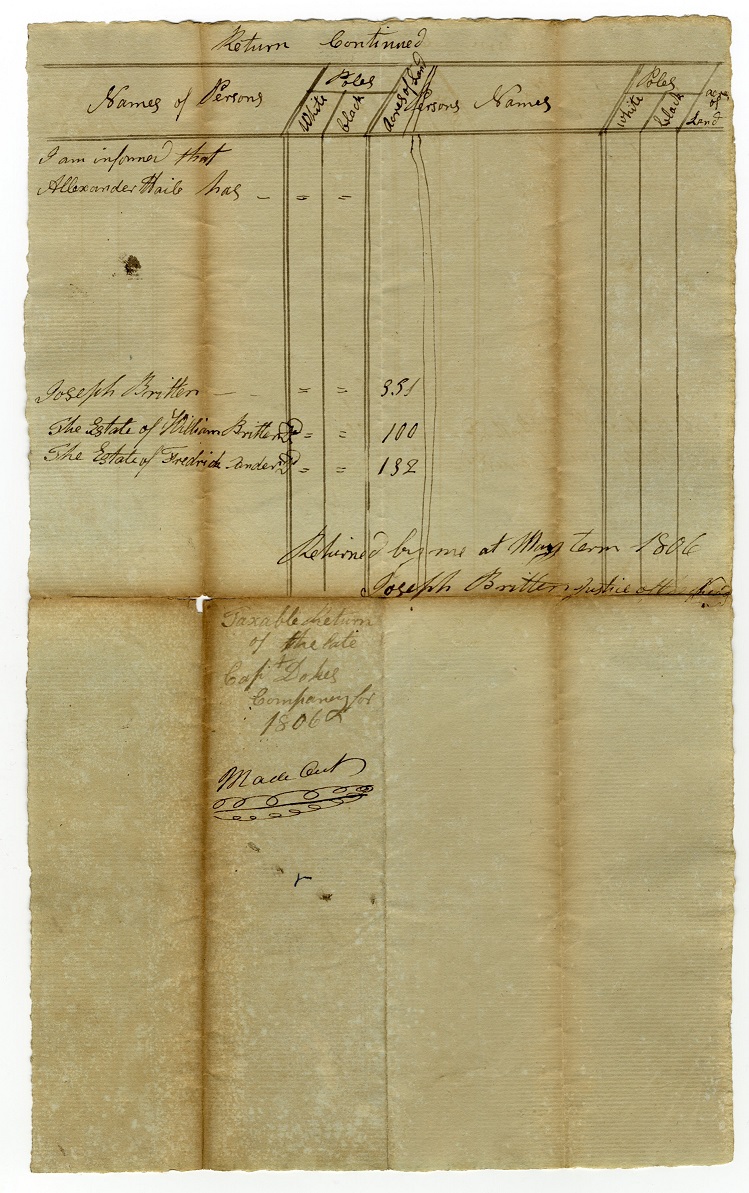 Return Continued
Names of Persons White Poles black Acres of Land Persons Names White Poles black Land
I am informed that
Allexander Haile has – = =
Joseph Britten – – = = 351
The Estate of William Britten = = 100
The Estate of Fredrick = = 132
Returned by me at May term 1806
Joseph Britten Justice
Taxable Return
of the late
Capt Dokes
Company for
1806
Made Out